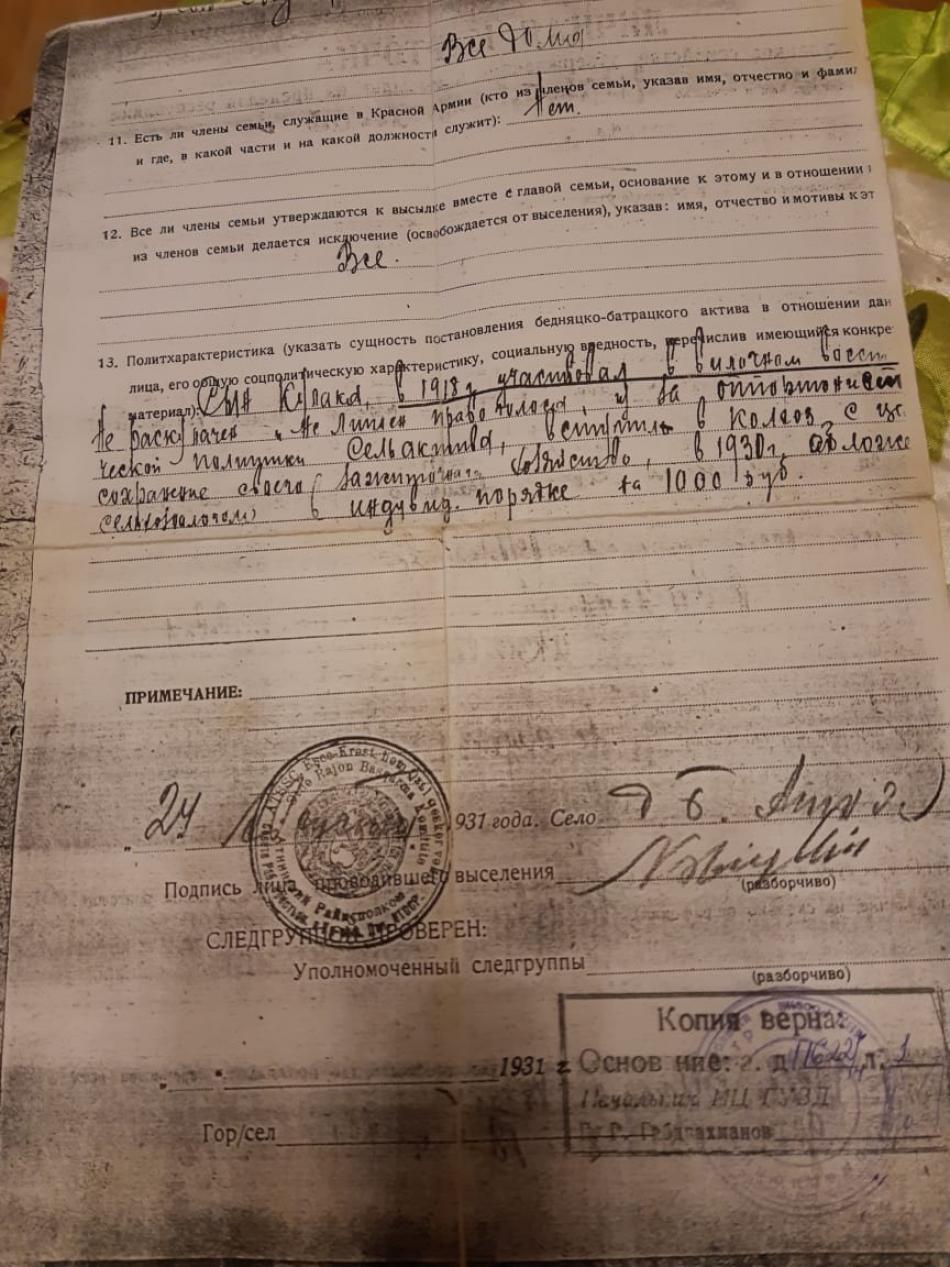 Все дома
11. Есть ли члены семьи, служащие в Красной Армии (кто из членов семьи, указав имя, отчество и фами
и где, в какой части и на какой должности служит): Нет.
12. Все ли члены семьи утверждаются к высылке вместе с главой семьи, основание к этому и в отношении
из членов семьи делается исключение (освобождается от выселения), указав: имя, отчество и мотивы к эт
Все.
13. Политхарактеристика (указать сущность постановления бедняцко-батрацкого актива в отношении дан
лица, его общую соцполитическую характеристику, социальную вредность, перечислив имеющийся конкре
материал): Сын Кулака, в 1918 г участвовал в вилочном восст
Не раскулачен и не Лишен право голоса, и за
ческой политики Сельактива, вступил в Колхоз с це
сохранение своего зажиточного хозяйство, в 1930 г, обложе
сельхозналогом в индувид. порядке на 1000 руб.
ПРИМЕЧАНИЕ:
„24 1931 года. Село
Подпись лица, проводившего выселения
(разборчиво)
СЛЕДГРУППОЙ ПРОВЕРЕН:
Уполномоченный следгруппы
(разборчиво)
Копия верна:
„ " 1931 г. Основ ние: г. д л. 1
Начальник ИЦ
Гор/сел